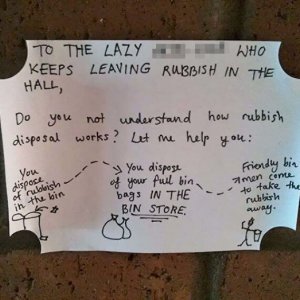 TO THE LAZY WHO
KEEPS LEAVING RUBBISH IN THE
HALL,
Do you not understand how rubbish
disposal works? Let me help you:
You
dispose
of rubbish
in the bin
You dispose
of your full bin
bags IN THE
BIN STORE.
Friendly bin
men come
to take the
rubbish
away.